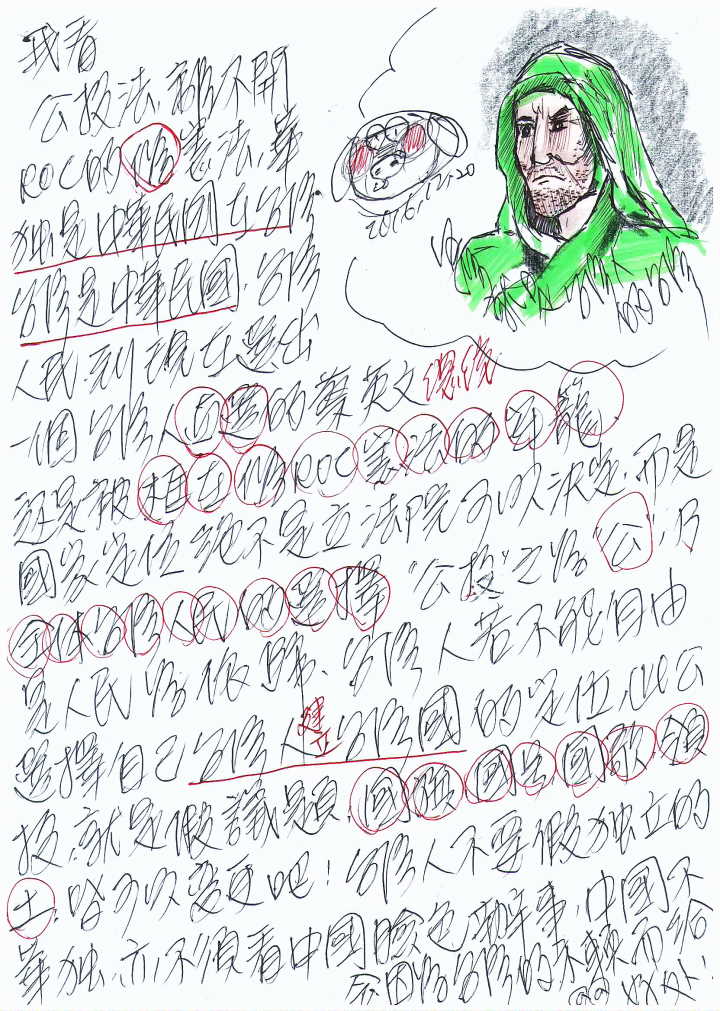 我看
公投法,離不開
ROC的偽憲法,華
独是中華民國在台灣
台灣是中華民國,台灣
人民,到現在選出
一個台灣人直選的蔡英文總統
還是被框在偽ROC憲法的牢籠
國家定位絕不是立法院可以決定,而是
全体台灣人民的選擇 "公投"之為"公",乃
是人民為依歸,台灣人若不能自由
選擇自己台灣人建立台灣國的定位,此公
投,就是假議題,國旗國号國歌,領
土,皆可以變更吧!台灣人不要假独立的
華独,亦不須看中國臉色辦事,中國不
會因為台灣的不獨而給 好处!
2016.12.20